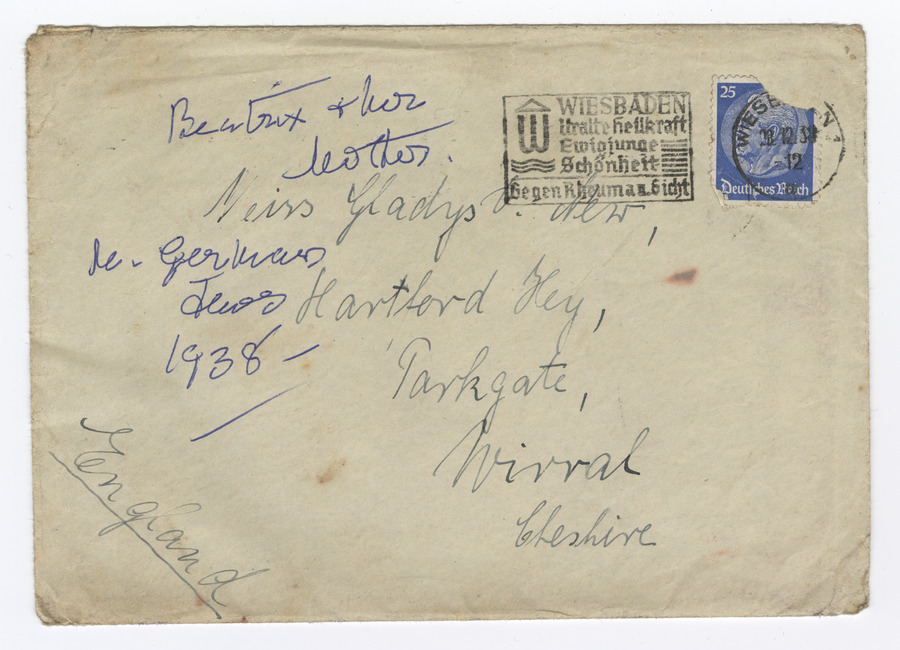 Beatrix & her
Mother.
re. German
Jews
1938 –
WIESBADEN
Uralte Heilkraft
Ewigjunge
Schönheit
Gegen Rheuma u. Gicht
25
Deutsches Reich
WIESB N
12.38
-12
Miss Gladys New,
Hartford Hey,
Parkgate,
Wirral
Cheshire
England